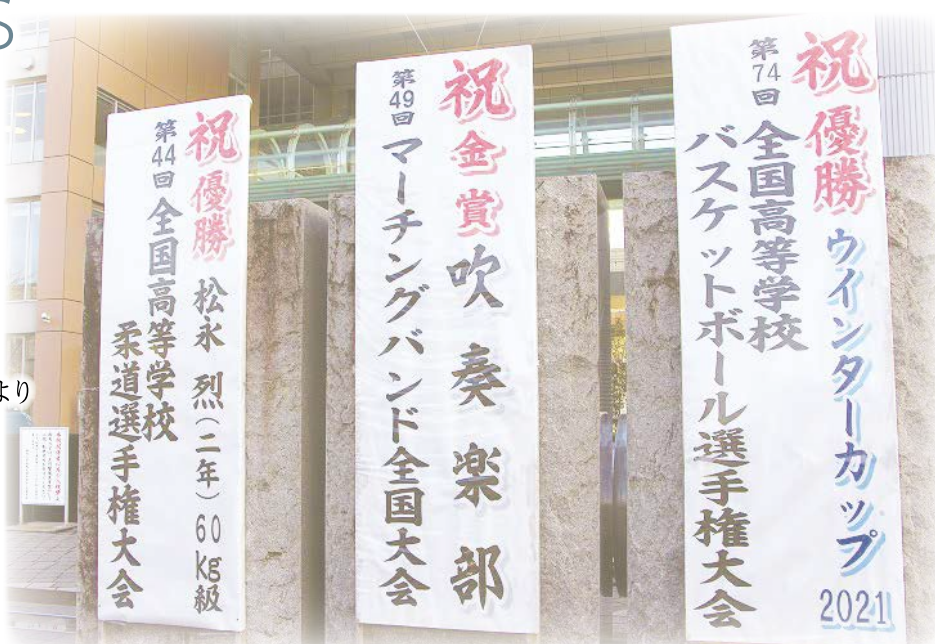 祝優勝 ウインターカップ 2021
第74回 全国高等学校
バスケットボール選手権大会
祝金賞 吹奏楽部
第49回 マーチングバンド全国大会
祝優勝 松永 烈(二年)60kg級
第44回 全国高等学校
柔道選手権大会
S
より